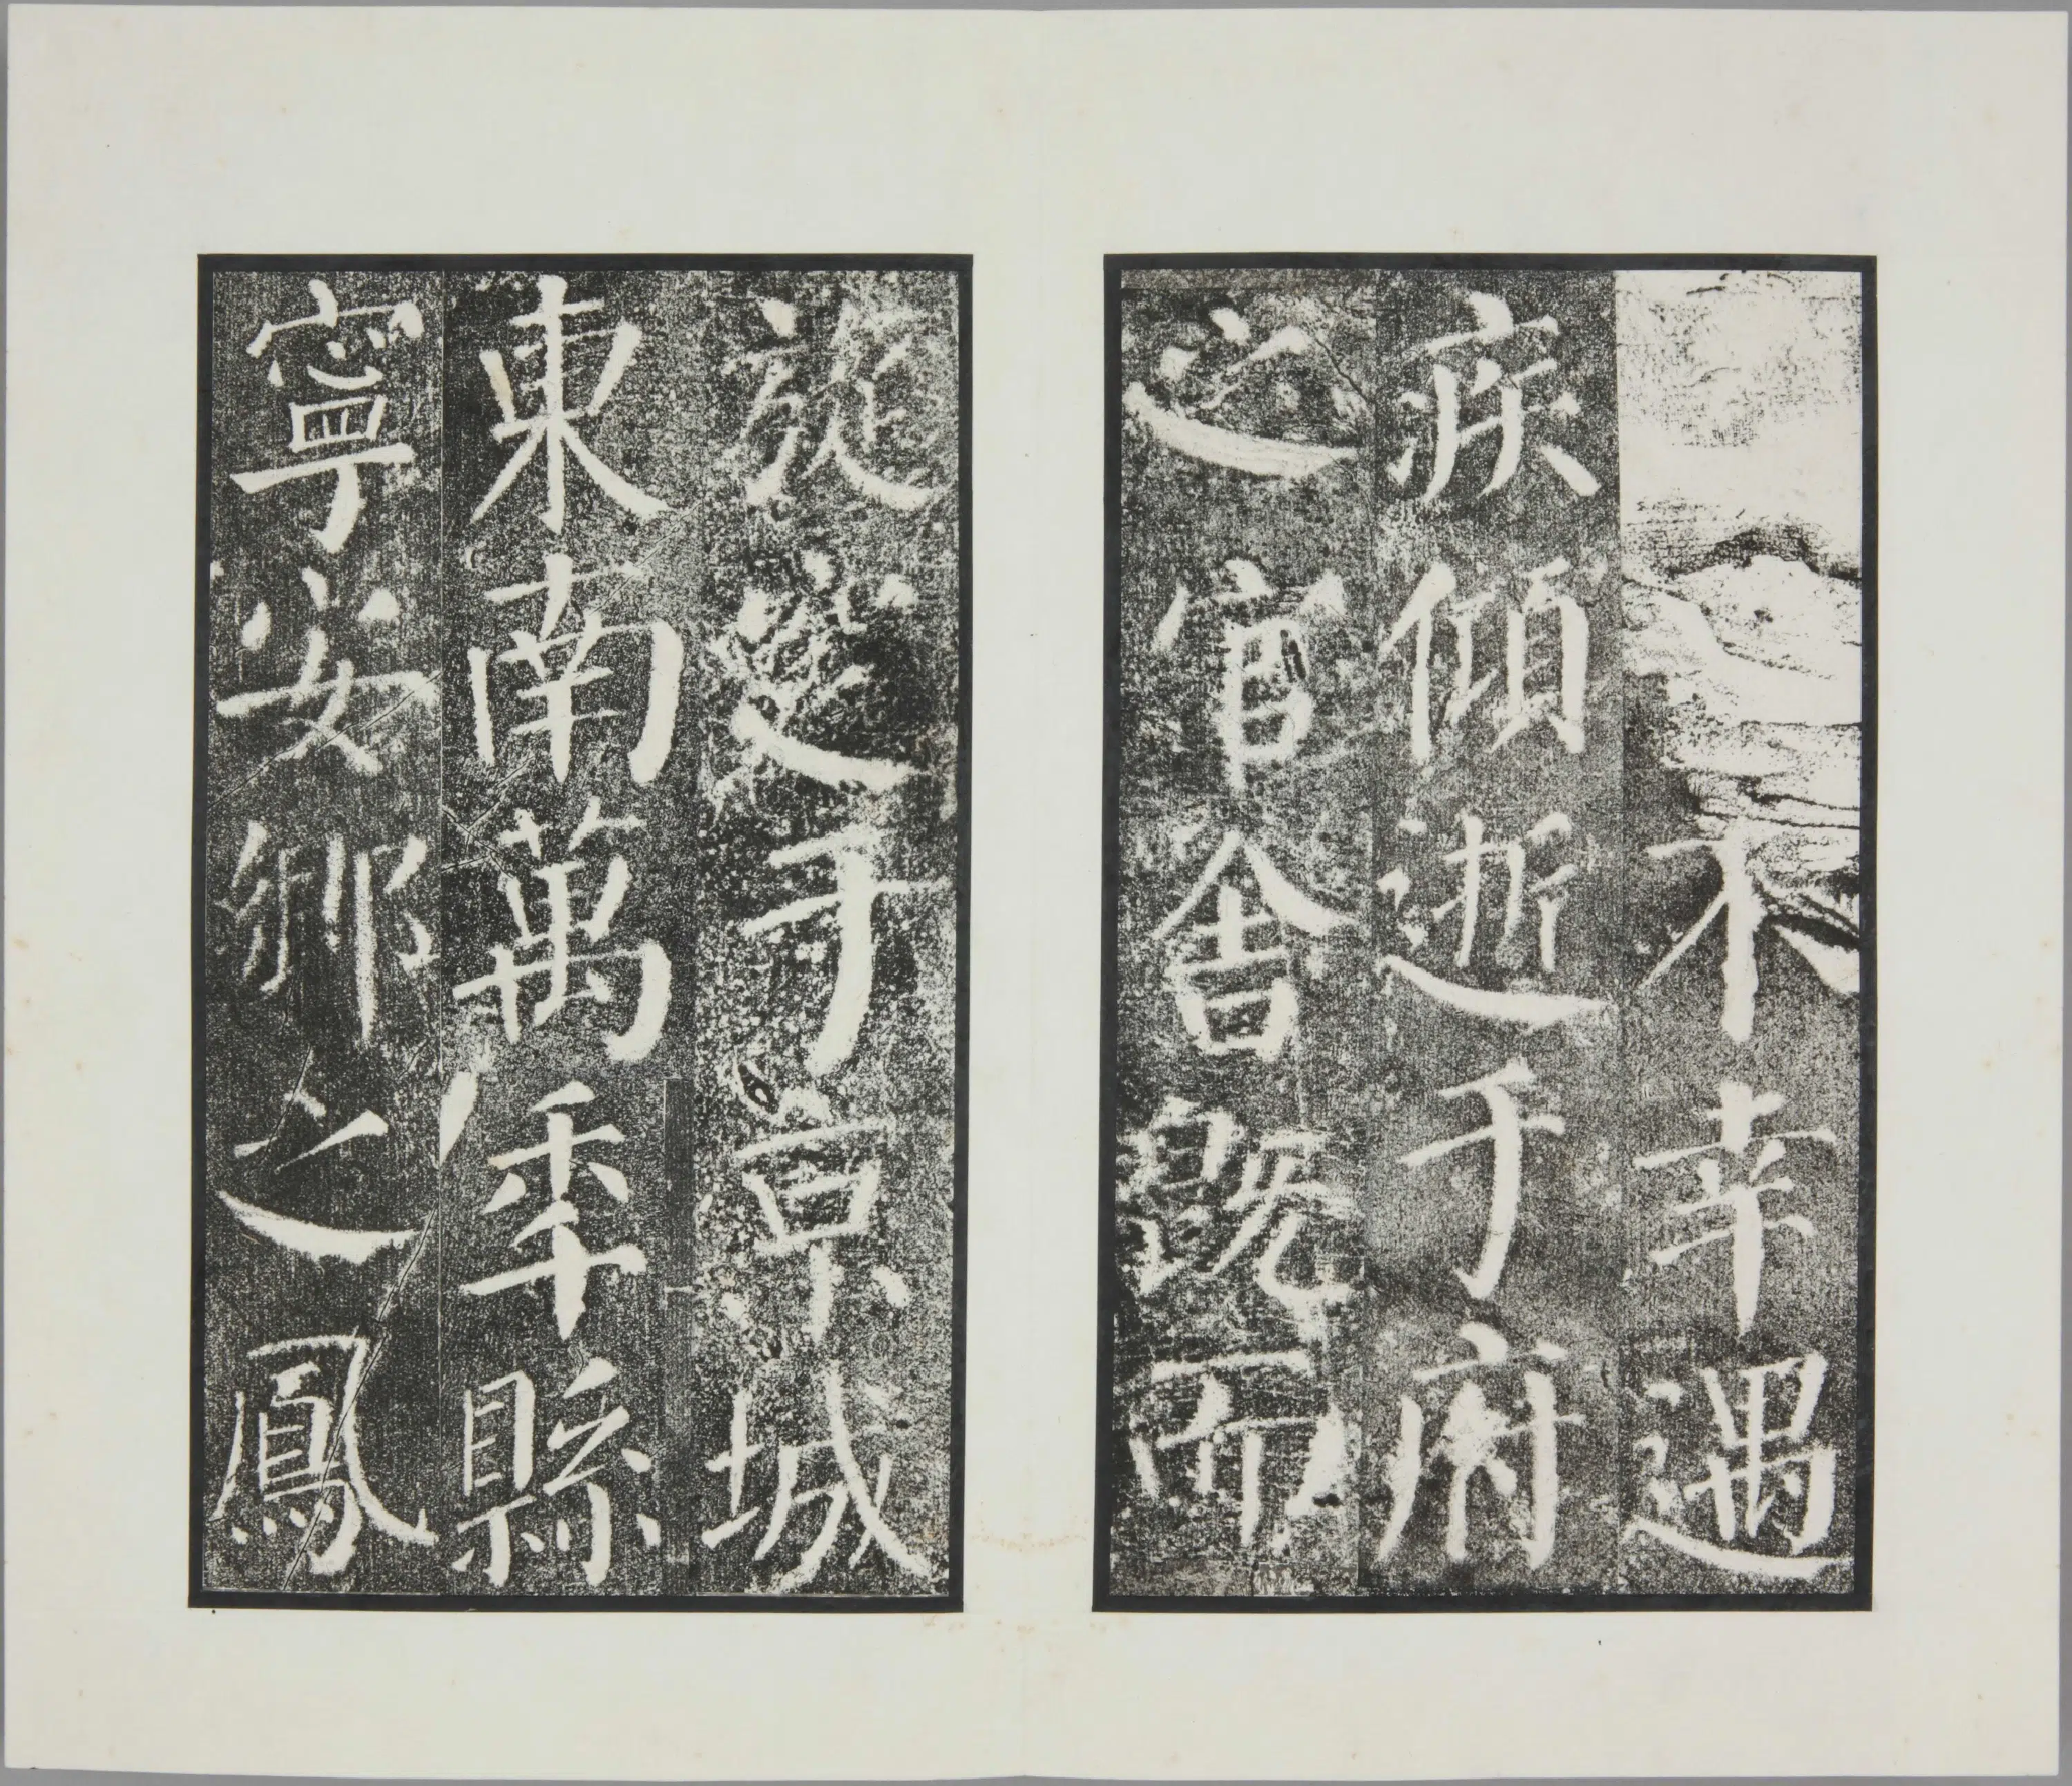 不幸遇
疾傾逝于府
之官舍既而
旋窆于京城
東南萬秊縣
寧安鄉之鳳